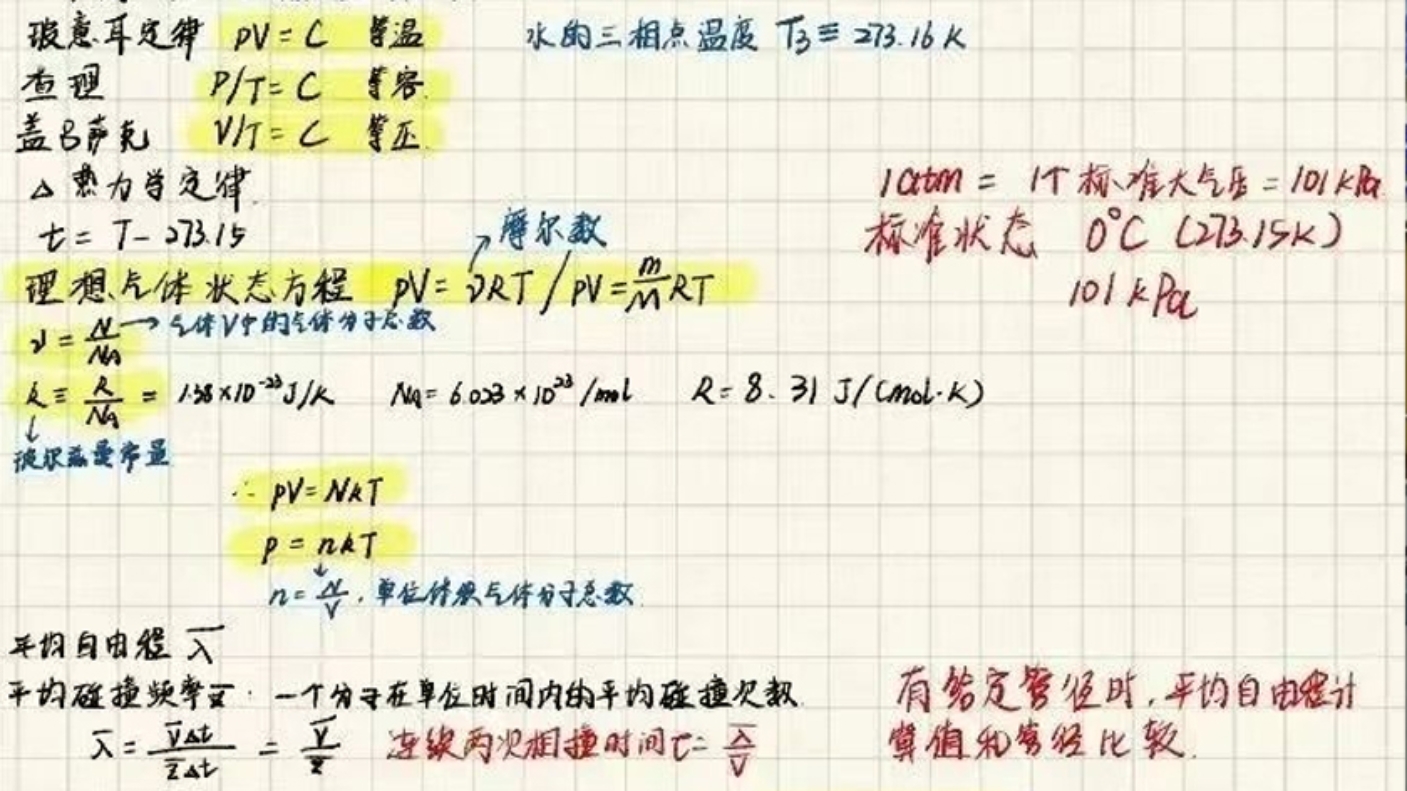 玻意耳定律 pV = C 等温
水的三相点温度 T₃ ≡ 273.16 K
查理 P/T = C 等容.
盖吕萨克 V/T = C 等压
△ 热力学定律.
t = T - 273.15
1atm = 1个标准大气压 = 101 kPa
标准状态 0°C (273.15K)
101 kPa
摩尔数
理想气体状态方程 pV = νRT / pV = m/M RT
ν = N/N_A → 气体V中的气体分子总数
k ≡ R/N_A = 1.38×10⁻²³ J/K N_A = 6.023×10²³ /mol R = 8.31 J/(mol·K)
玻尔兹曼常量
∴ pV = NkT
p = nkT
n = N/V, 单位体积气体分子总数.
平均自由程 λ̄
平均碰撞频率 z̄ · 一个分子在单位时间内的平均碰撞次数.
λ̄ = v̄Δt / z̄Δt = v̄ / z̄ 连续两次相撞时间 τ = λ̄ / v̄
有给定管径时, 平均自由程计
算值和管径比较.